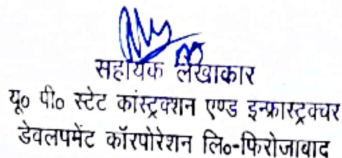 सहायक लेखाकार
यू० पी० स्टेट कांस्ट्रक्शन एण्ड इन्फ्रास्ट्रक्चर
डेवलपमेंट कॉरपोरेशन लि०-फिरोजाबाद